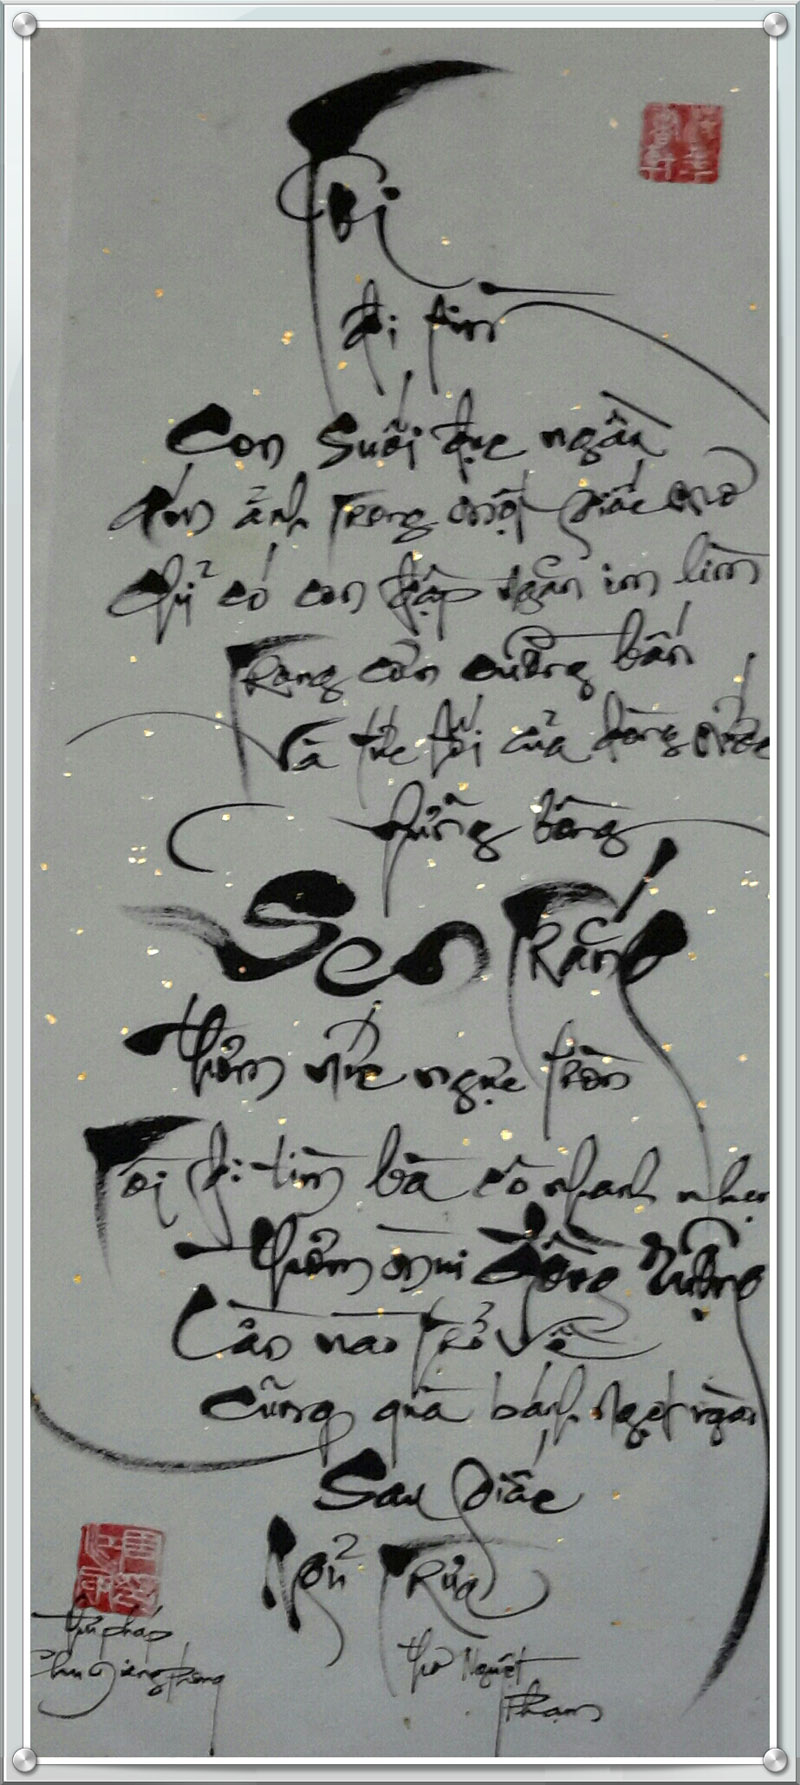 Tôi
đi tìm
Con suối đục ngầu
đón ảnh trong một giấc mơ
Chỉ có con đập ngăn im lìm
Rong cồn cuống bấn
Và tức tối của dòng nước
những bông
Sen Trắng
thơm nức ngực tròn
Tôi đi tìm bà cô nhanh nhẹn
thơm mùi đồng ruộng
Lần nào trở về
cũng quà bánh ngọt ngào
Sau giấc
Ngủ Trưa
thư pháp
Chu Giang Phong
thơ Nguyệt
Phạm